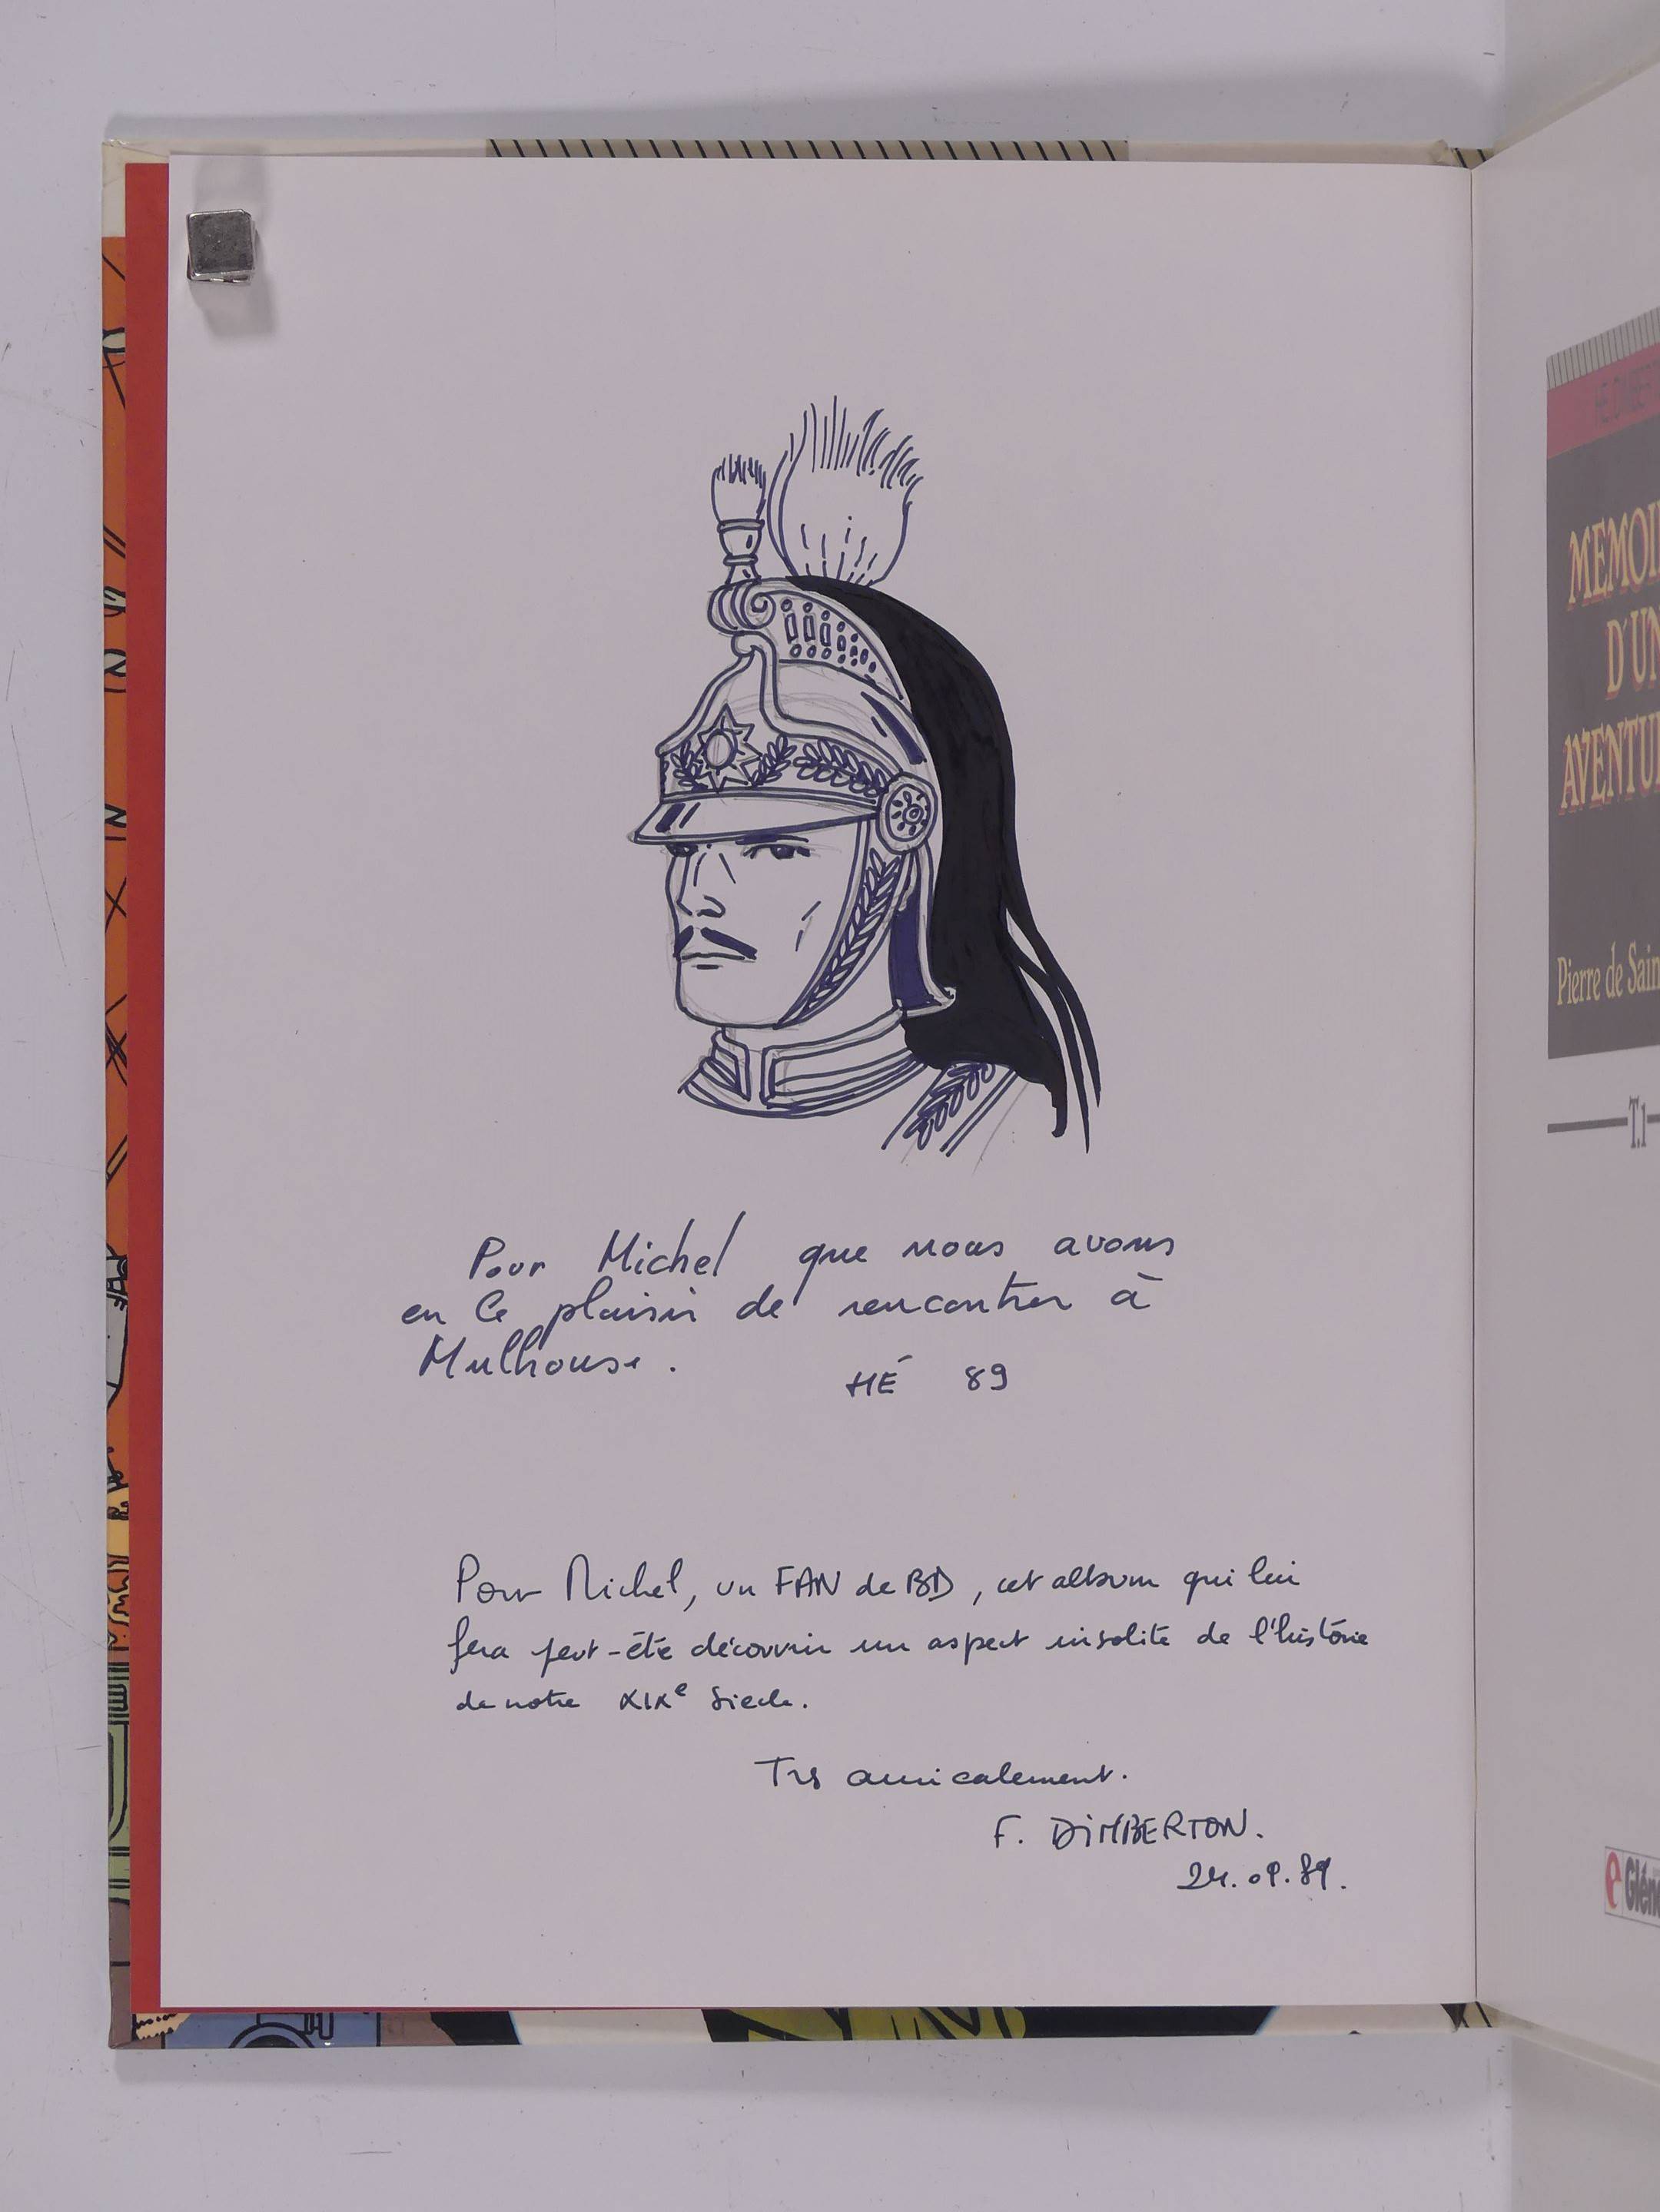 Pour Michel que nous avons
eu le plaisir de rencontrer à
Mulhouse.
HÉ 89
Pour Michel, un FAN de BD, cet album qui lui
fera peut-être découvrir un aspect insolite de l'histoire
de notre XIXe siècle.
Très amicalement.
F. DIMBERTON.
24.09.89.
MEMOI
D'UN
AVENTU
Pierre de Sain
T.1
Glén